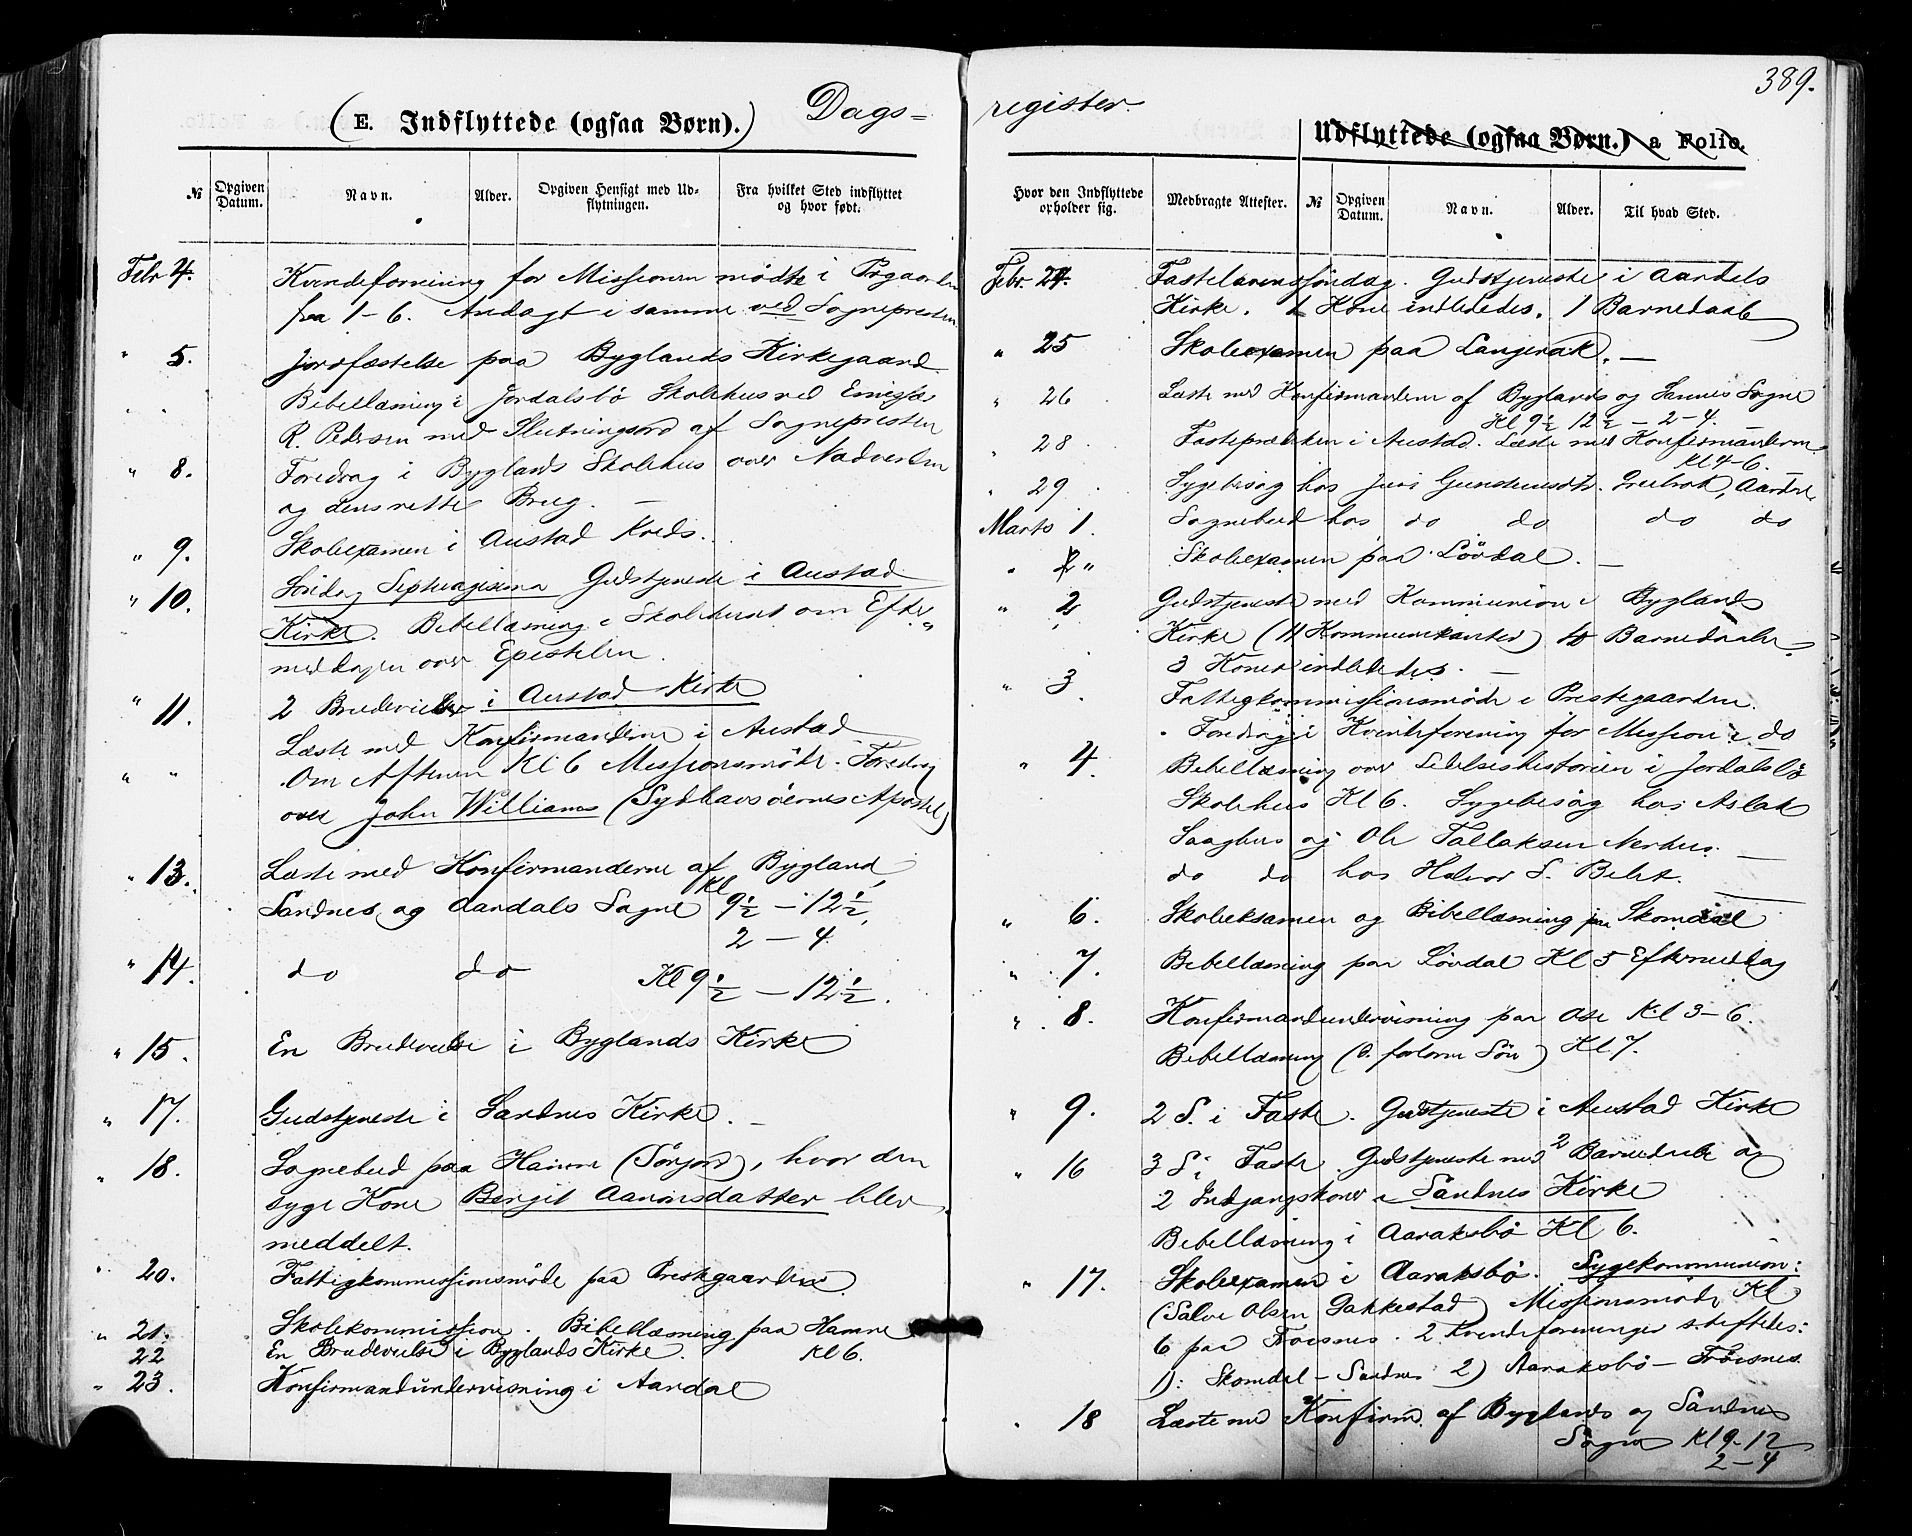 389.
(E. Indflyttede (ogsaa Børn).) Dags=
№ Opgiven Datum. Navn. Alder. Opgiven Hensigt med Udflytningen. Fra hvilket Sted indflyttet og hvor født.
Febr 4. Kvindeforening for Missionen mødte i Prgaarden
fra 1-6. Andagt i samme ved Sognepresten
" 5. Jordfæstelse paa Byglands Kirkegaard.
" " Bibellæsning i Jordalsbö Skolehus ved
R. Pedersen med Slutningsord af Sognepresten
" 8. Foredrag i Byglands Skolehus over Nadverden
og dens rette Brug. —
" 9. Skoleexamen i Austad Kreds.
" 10. Søndag Septuagesima Gudstjeneste i Austad
Kirke. Bibellæsning i Skolehuset om Efter
" meddagen over Epistelen.
" 11. 2 Brudevielser i Austad Kirke
Læste med Konfirmanderne i Austad
" " Om Aftenen Kl 6 Missionsmöde. Foredrag
over John Williams (Sydhavsöernes Apostel)
" 13. Læste med Konfirmanderne af Bygland,
Sandnes og Aardals Sogne Kl 9½ — 12½,
2 — 4.
" 14. do do Kl 9½ — 12½.
" 15. En Brudevielse i Byglands Kirke
" 17. Gudstjeneste i Sandnes Kirke. —
" 18. Sognebud paa Hamre (Sörjord), hvor den
syge Kone Bergit Aamonsdatter blev
meddelt.
" 20. Fattigkommissionsmöde paa Prestegaarden.
" 21. Skolekommission. Bibellæsning paa Hamre
Kl 6.
22 En Brudevielse i Byglands Kirke.
" 23. Konfirmandundervisning i Aardal
register.
Udflyttede (ogsaa Børn.) a Folio.
Hvor den Indflyttede opholder sig. Medbragte Attester. № Opgiven Datum. Navn. Alder. Til hvad Sted.
Febr. 24. Fastelavnssöndag. Gudstjeneste i Aardals
Kirke. 1 Kone indlededes. 1 Barnedaab
" 25 Skoleexamen paa Langerak. —
" 26 Læste med Konfirmanderne af Byglands og Sannes Sogne
Kl 9½ 12½ — 2-4.
" 28 Fasteprædiken i Austad. Læste med Konfirmanderne
Kl 4-6.
" 29 Sygebesög hos Gundersdtr. Aardal
Marts 1. Sognebud hos do do do do
" 2 " Skoleexamen paa Lövdal. —
" 2 Gudstjeneste med Kommunion i Byglands
Kirke (11 Kommunikanter) Barnedaaber.
3 Koner indlededes. —
" 3. Fattigkommissionsmöde i Prestegaarden.
Foredrag i Kvindeforening for Mission i do
" 4. Bibellæsning over Lidelseshistorien i Jordalsbö
Skolehus Kl 6. Sygebesög hos Aslak
Saaghus og Ole Tallaksen Nerhus. —
do do hos Halvor S. Belet.
" 6. Skoleeksamen og Bibellæsning paa Skomdal
" 7. Bibellæsning paa Lövdal Kl 5 Eftermiddag
" 8. Konfirmandundervisning paa Ose Kl 3-6.
Bibellæsning (d. forlorne Sön) Kl. 7.
" 9. 2 S. i Faste. Gudstjeneste i Austad Kirke
" 16 3 S i Faste. Gudstjeneste med 2 Barnedaab og
2 Indgangskoner i Sandnes Kirke
Bibellæsning i Aaraksbö Kl 6.
" 17. Skoleexamen i Aaraksbö. Sygekommunion:
(Salve Olsen Gakkestad) Missionsmöde Kl
6 paa Fröisnes. 2 Kvindeforeninger stiftedes:
1): Skomdal — Sandnes 2) Aaraksbö — Fröisnes
" 18 Læste med Konfirm. af Byglands og Sandnes
Sogne Kl 9-12
2-4